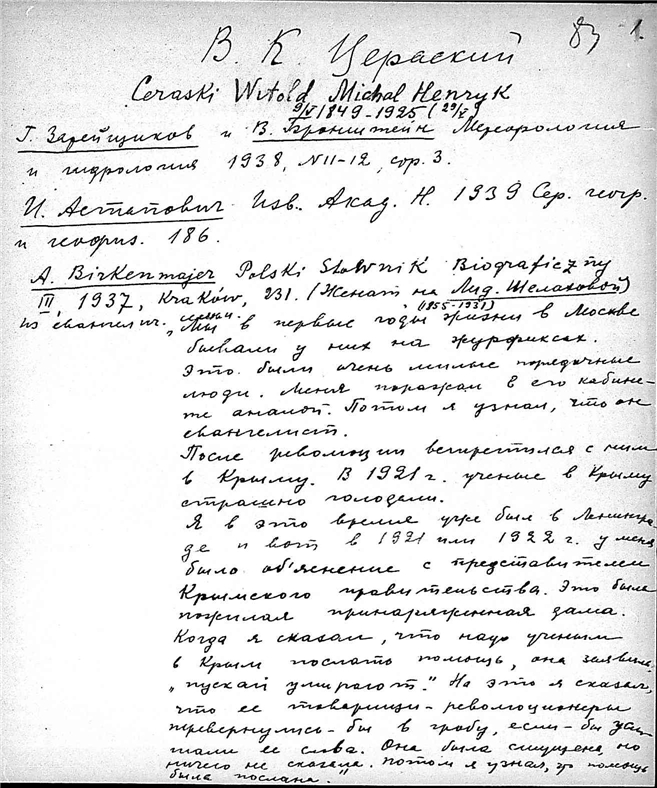 83 1.
В. К. Цераский
Ceraski Witold Michał Henryk
9/V 1849-1925 (29/V)
Г. Зарейщиков и В. Бронштейн Метеорология
и гидрология 1938, N11-12, стр. 3.
И. Астапович Изв. Акад. Н. 1939 Сер. геогр.
и геофиз. 186.
A. Birkenmajer Polski Słownik Biograficzny
III, 1937, Kraków, 231. (Женат на Лид. Шелаховой)
(1855-1931)
из евангелич. "Мы в первые годы жизни в Москве
бывали у них на журфиксах.
Это были очень милые порядочные
люди. Меня поражал в его кабине-
те аналой. Потом я узнал, что он
евангелист.
После революции встретился с ним
в Крыму. В 1921 г. ученые в Крыму
страшно голодали.
Я в это время уже был в Ленингра-
де и вот в 1921 или 1922 г. у меня
было об'яснение с представителем
Крымского правительства. Это была
пожилая принаряженная дама.
Когда я сказал, что надо ученым
в Крым послать помощь, она заявила
"пускай умирают." На это я сказал,
что ее товарищи-революционеры
перевернулись-бы в гробу, если-бы услы-
шали ее слова. Она была смущена, но
ничего не сказала. Потом я узнал, что помощь
была послана."